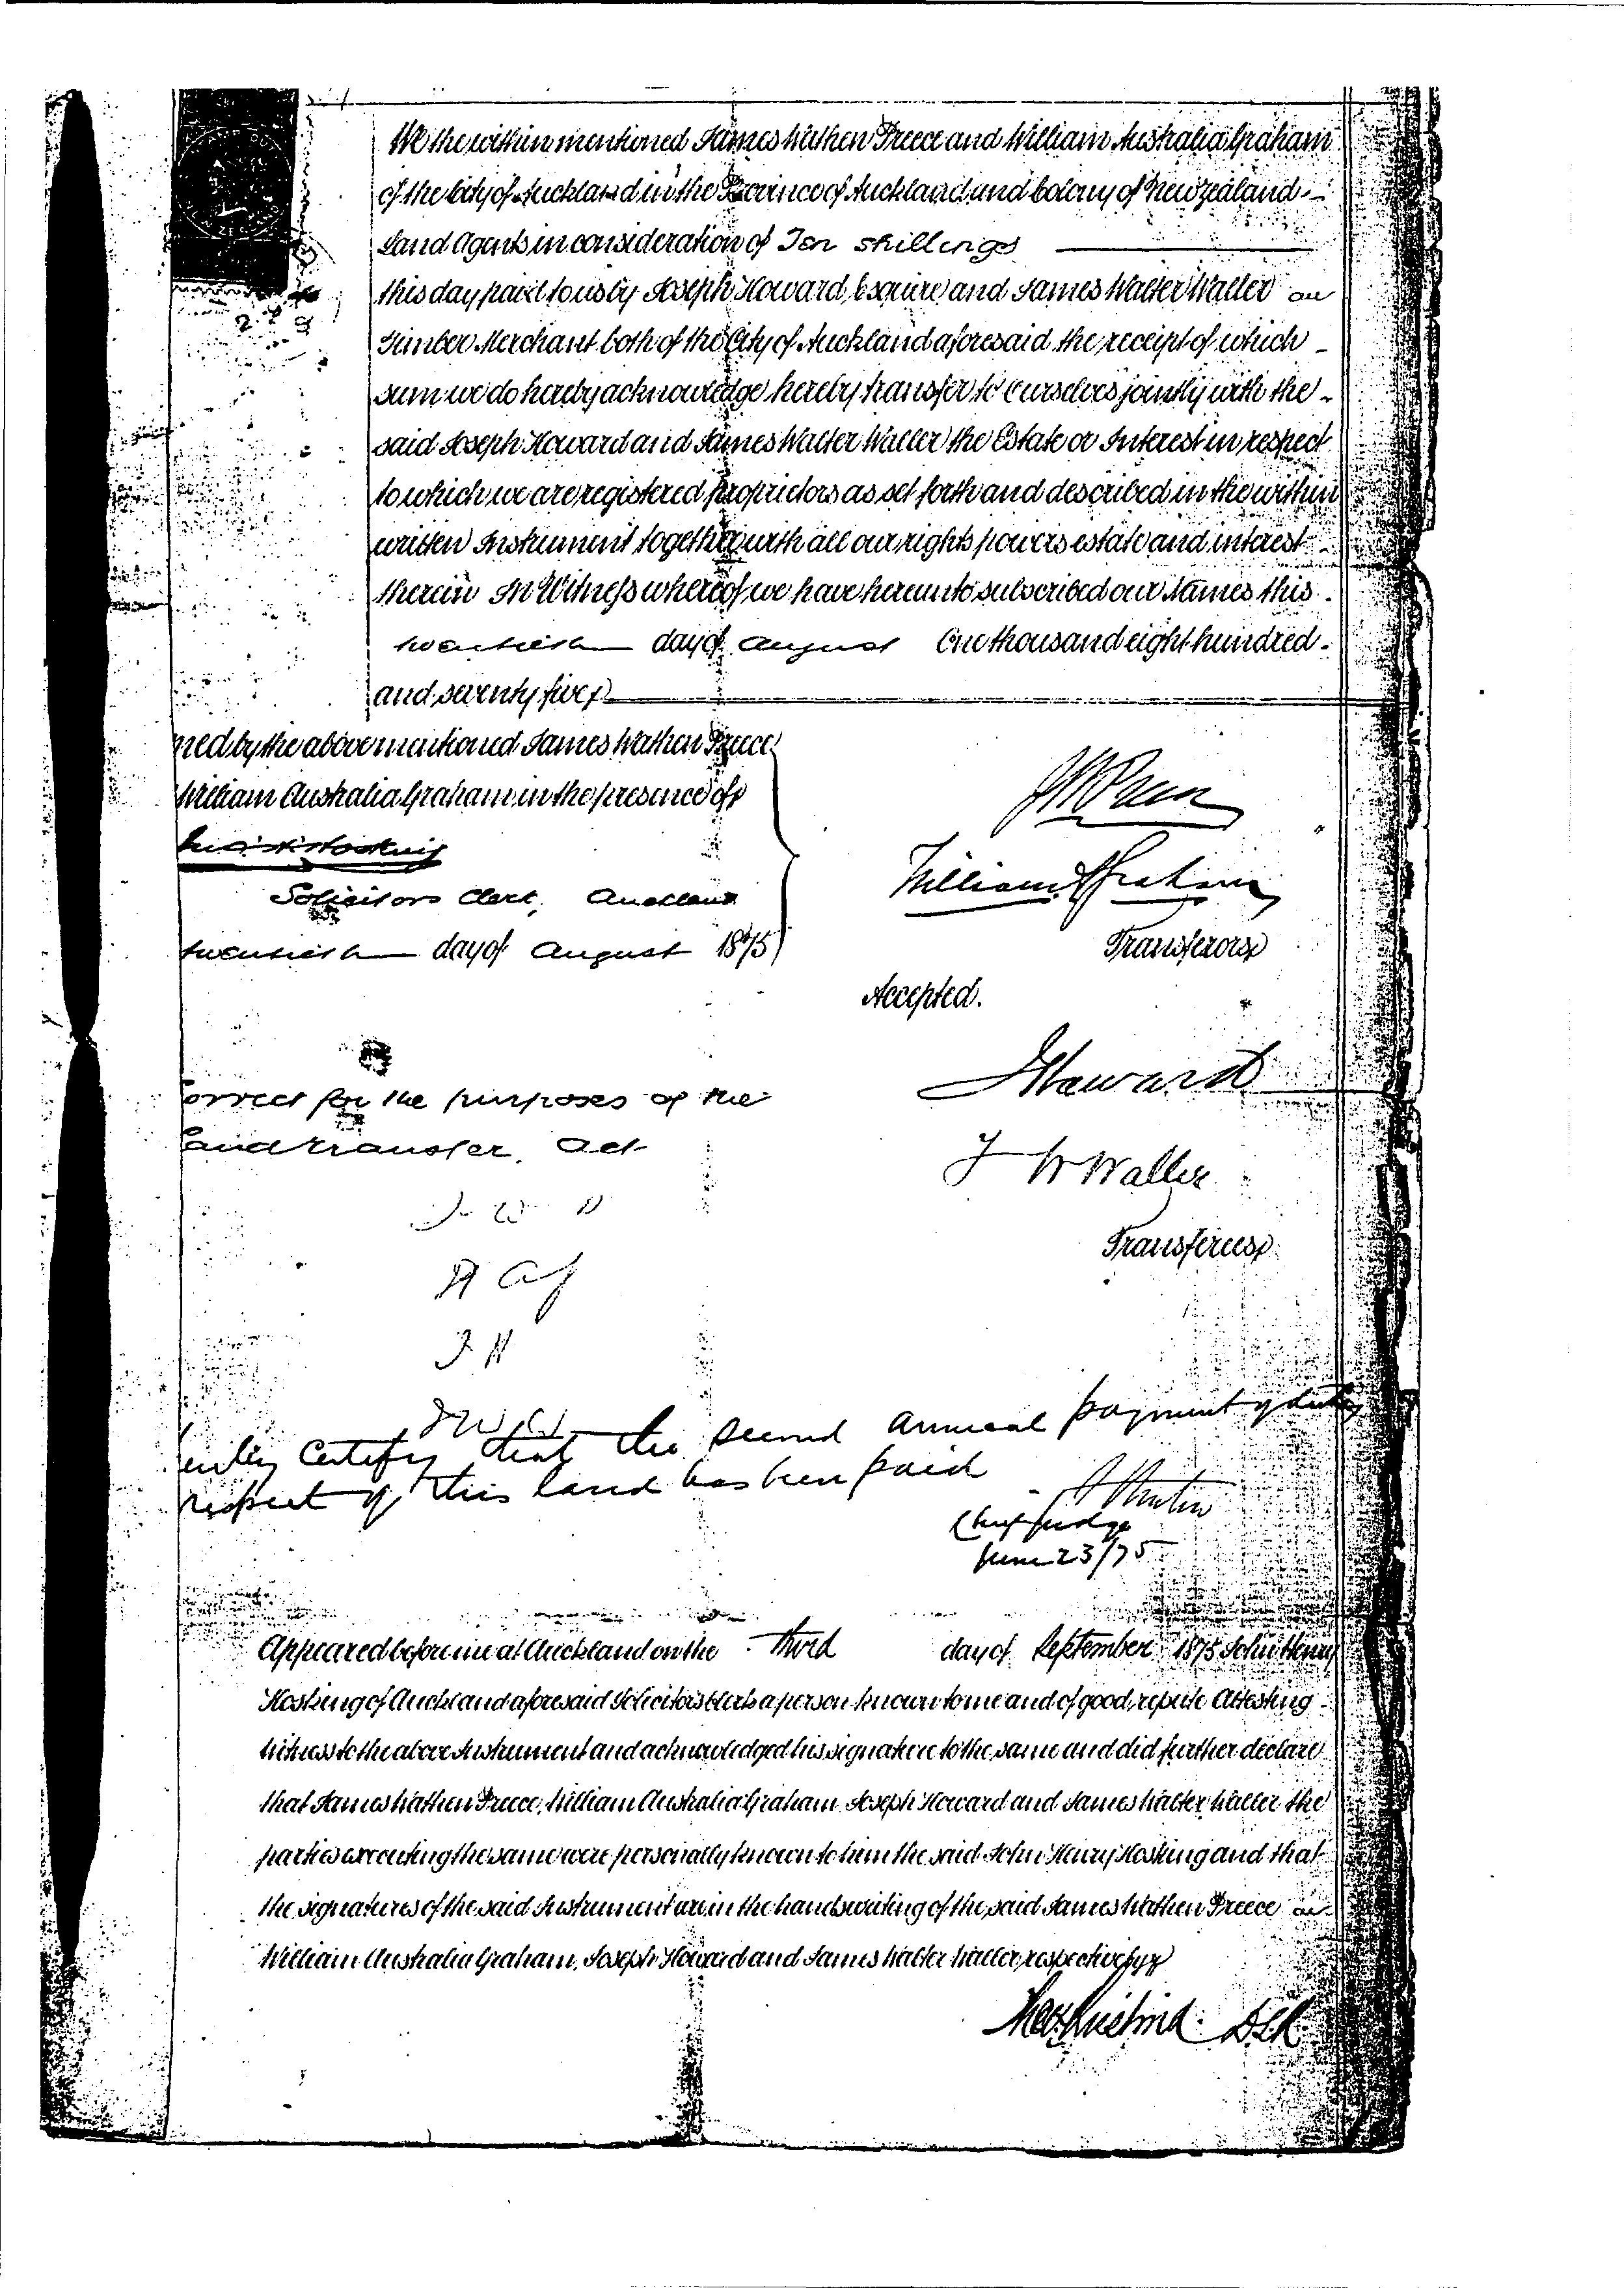 We the within mentioned James Wathen Preece and William Australia Graham
of the City of Auckland in the Province of Auckland and Colony of New Zealand
Land Agents in consideration of Ten shillings
this day paid to us by Joseph Howard Esquire and James Walter Waller
Timber Merchant both of the City of Auckland aforesaid the receipt of which
sum we do hereby acknowledge hereby transfer to ourselves jointly with the
said Joseph Howard and James Walter Waller the Estate or Interest in respect
to which we are registered proprietors as set forth and described in the within
written Instrument together with all our rights powers estate and interest
therein In Witness whereof we have hereunto subscribed our Names this
twentieth day of August One thousand eight hundred
and seventy five
ned by the above mentioned James Wathen Preece
William Australia Graham in the presence of
Solicitors Clerk, Auckland
twentieth day of August 1875
William A Graham
Transferors
Accepted.
JHoward
orrect for the purposes of the
Land transfer Act
J W Waller
Transferees
J. H
certify that the second annual payment of duty
respect of this land has been paid
Chief Judge
June 23/75
Appeared before me at Auckland on the Third day of September 1875 John Henry
Hosking of Auckland aforesaid Solicitors Clerk a person known to me and of good repute Attesting
witness to the above Instrument and acknowledged his signature to the same and did further declare
that James Wathen Preece, William Australia Graham Joseph Howard and James Walter Waller the
parties executing the same were personally known to him the said John Henry Hosking and that
the signatures of the said Instrument are in the handwriting of the said James Wathen Preece
William Australia Graham, Joseph Howard and James Walter Waller respectively
DLR